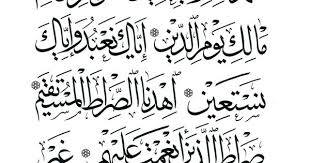 مَالِكِ يَوْمِ الدِّينِ ۞ إِيَّاكَ نَعْبُدُ وَإِيَّاكَ
نَسْتَعِينُ ۞ اهْدِنَا الصِّرَاطَ الْمُسْتَقِيمَ ۞
صِرَاطَ الَّذِينَ أَنْعَمْتَ عَلَيْهِمْ ۞ غَيْرِ